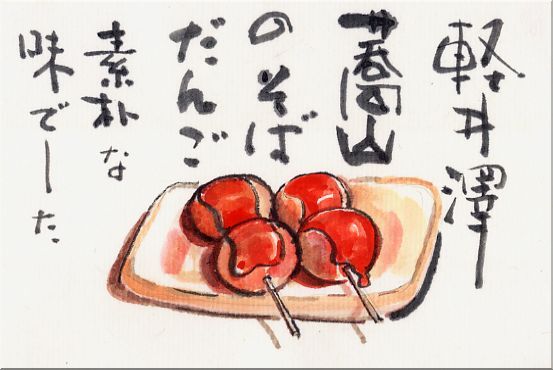 軽井澤
のそば
だんご
素朴な
味でした